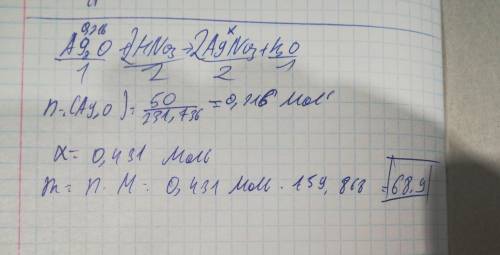 0,216 x
Ag₂O + 2HNO₃ → 2AgNO₃ + H₂O
1 2 2 1
n = (Ag₂O) = 50 / 231,736 = 0,216 моль
x = 0,431 моль
m = n · M = 0,431 моль · 159,868 = 68,9